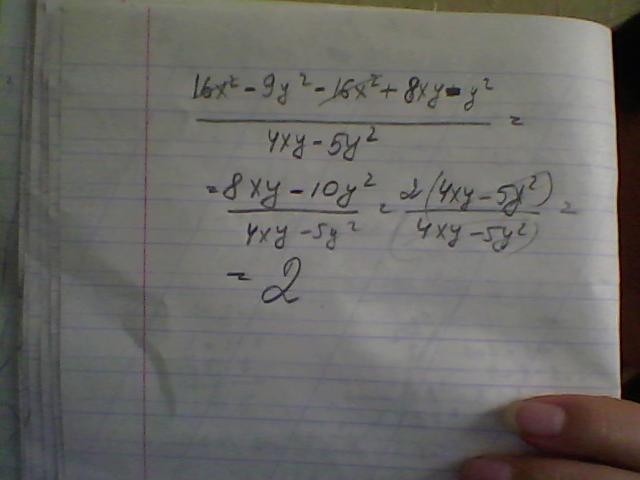 16x² - 9y² - 16x² + 8xy - y² =
4xy - 5y²
= 8xy - 10y² = 2(4xy - 5y²) =
4xy - 5y² (4xy - 5y²)
= 2